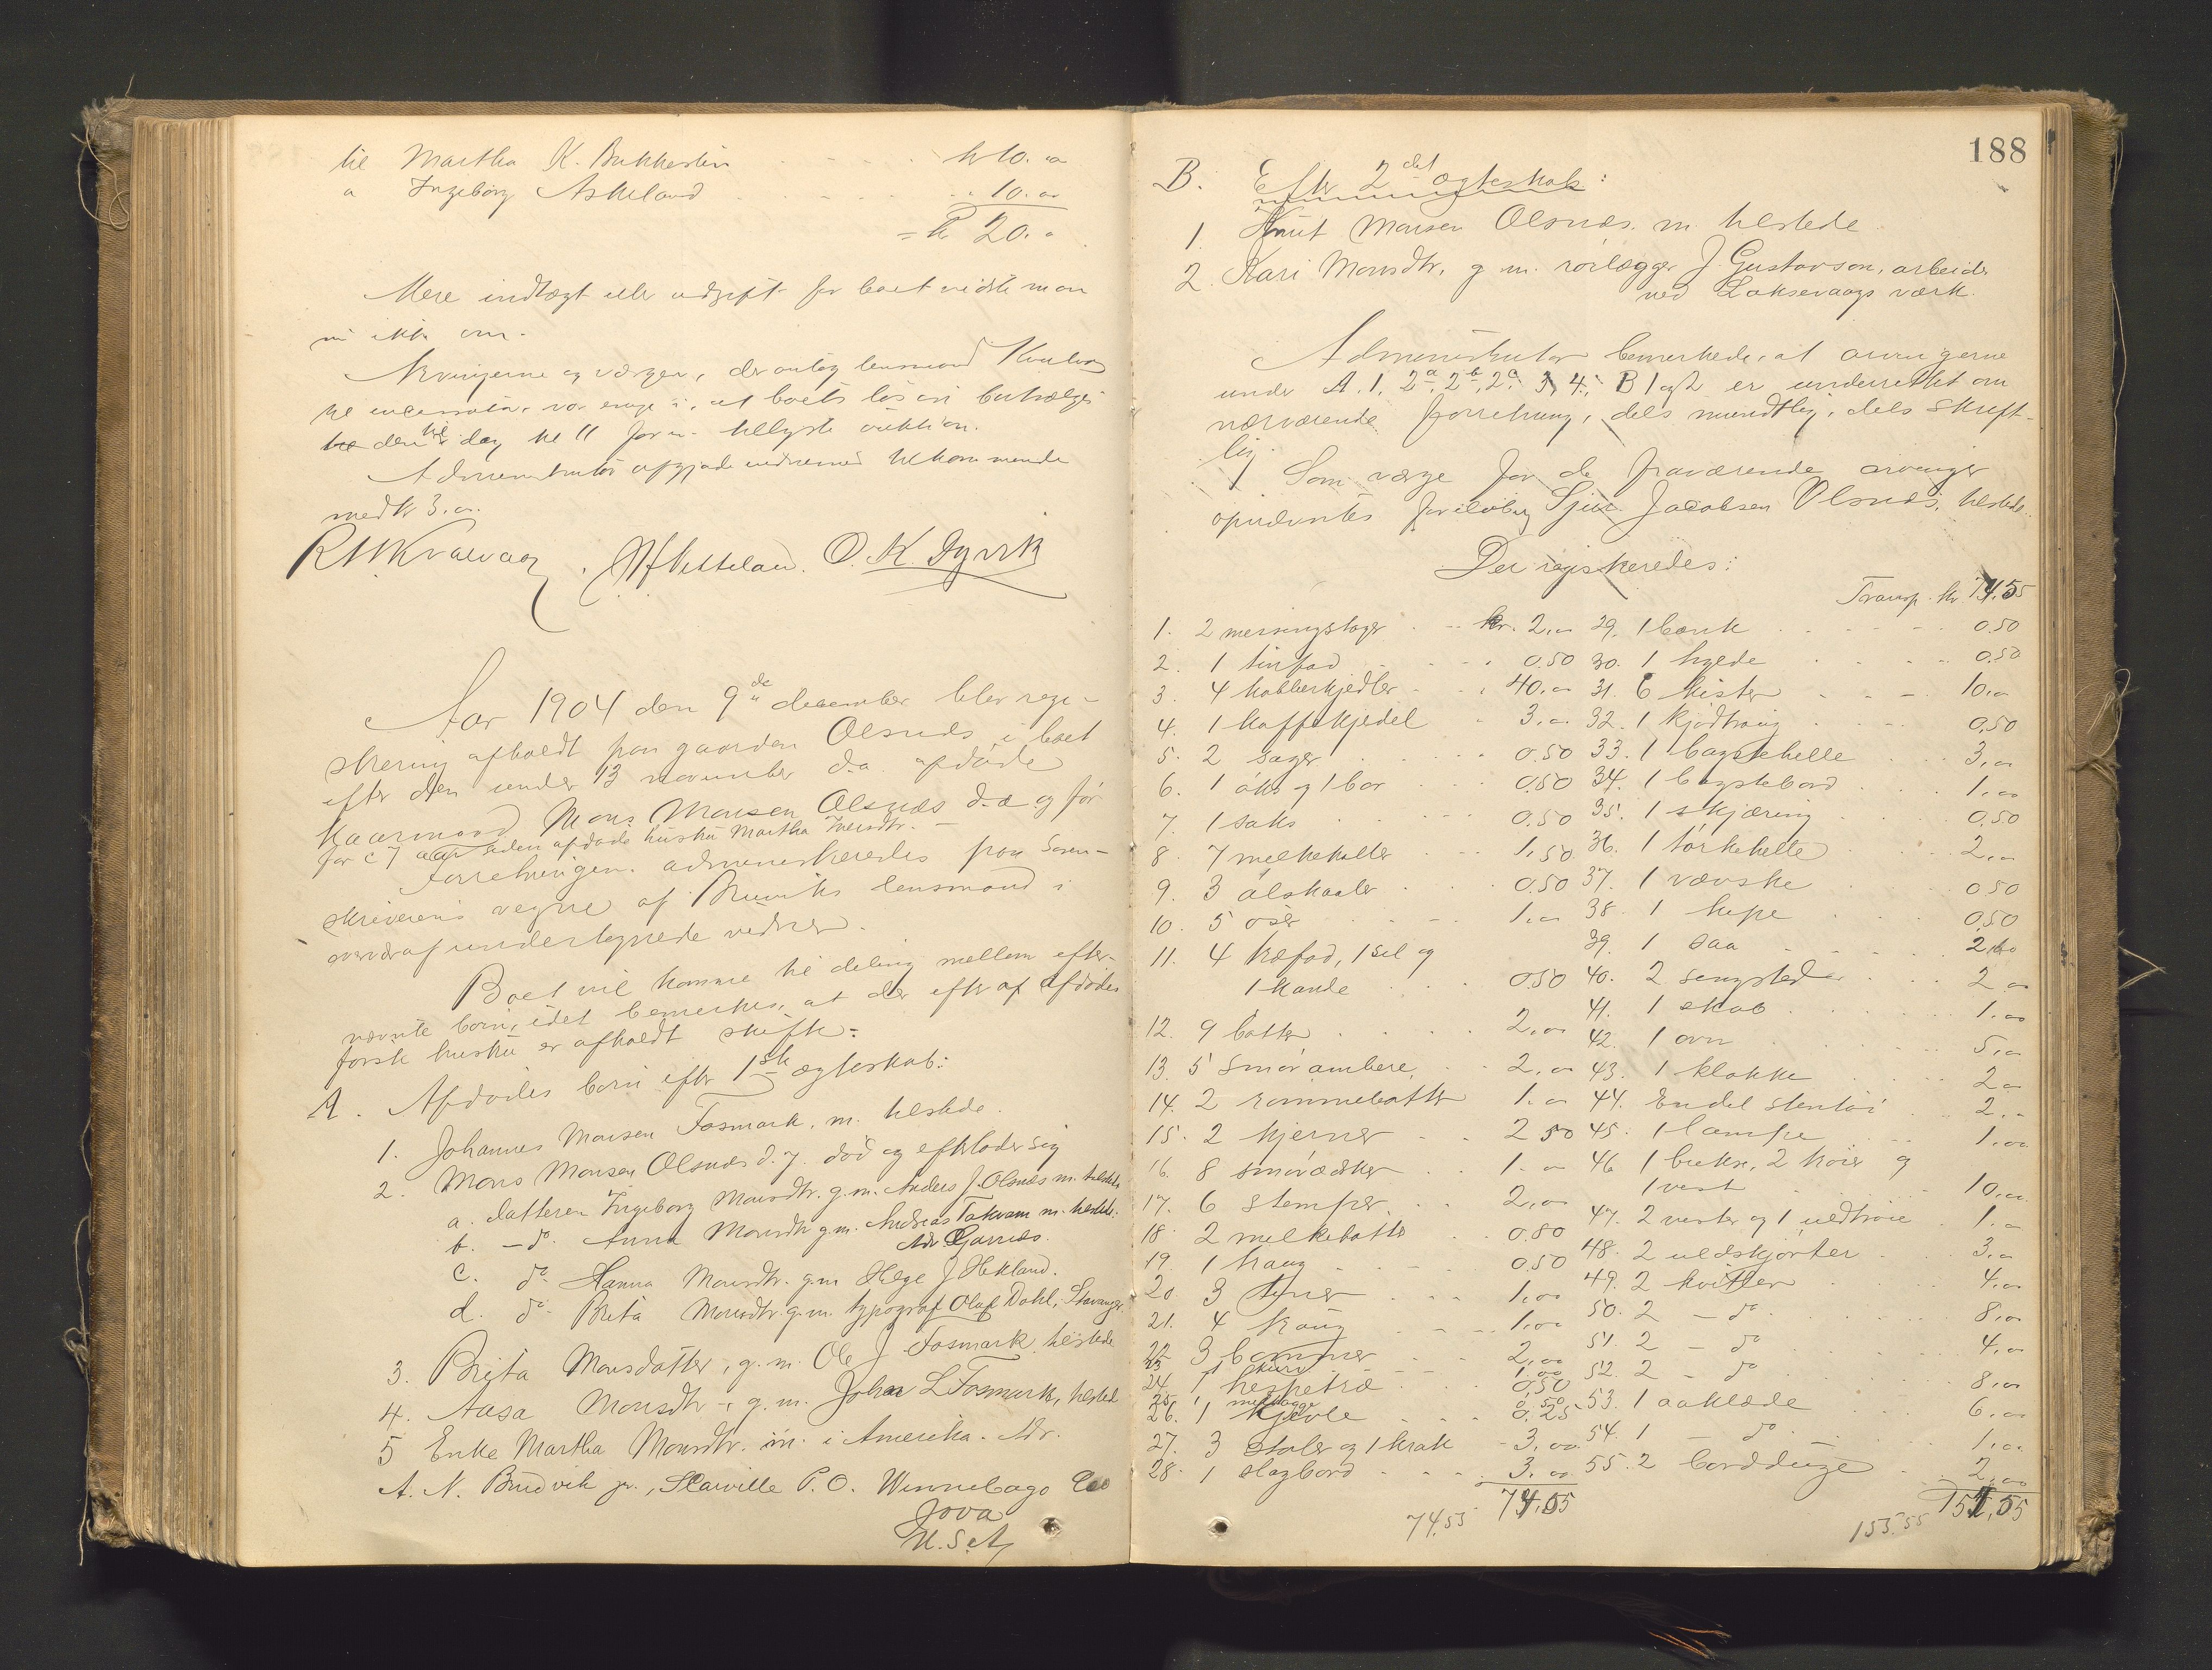 til Martha K. Bukkesten kr 10.00
" Ingeborg Askeland " 10.00
= kr 20.00
Mere indtægt eller udgift for boet vidste man
nu ikke om.
Arvingerne og værgen, der antog lensmand Kvalvaag
til incassator, var enige i, at boets løsøre bortsælges
den dag kl 11 form. tillyste auktion.
Administrator afgjorde vidnernes tilkommende
med kr 3.00.
R H Kvalvaag. O. K. Dyvik
Aar 1904 den 9de december blev regi-
strering afholdt paa gaarden Olsnæs i boet
efter den under 13 november d.a. afdøde
kaarmand Mons Monsen Olsnæs d.æ og før
for c 7 aar siden afdøde hustru Martha Iversdtr. —
Forretningen administreredes paa Soren-
skriverens vegne af Bruviks lensmand i
overvær af undertegnede vidner.
Boet vil komme til deling mellem efter-
nævnte børn, idet bemerkes, at der efter af afdødes
første hustru er afholdt skifte:
A. Afdødes børn efter 1ste ægteskab:
1. Johannes Monsen Fosmark, m. tilstede.
2. Mons Monsen Olsnæs d.y. død og efterlader sig
a. datteren Ingeborg Monsdtr. g.m. Anders J. Olsnæs m. tilstede
b. — do. Anna Monsdtr g.m. Andreas Takvam m. tilstede.
Adr. Garnæs.
c. do. Hanna Monsdtr. g.m Helge J Hekland.
d. do. Brita Monsdtr. g.m. typograf Olaf Dahl, Stavanger.
3. Brita Monsdatter, g.m. Ole J Fosmark, tilstede
4. Aasa Monsdtr -, g.m. Johan L Fosmark, tilsted
5 Enke Martha Monsdtr. m. i Amerika. Adr.
A. N. Brudvik jr., Scarville P.O. Winnebago Coo
Jova
U.S.A
188
B. Efter 2det ægteskab:
1. Knut Monsen Olsnæs. m. tilstede.
2. Kari Monsdtr. g.m. rørlægger J. Gustavson, arbeider
ved Laksevaags værk.
Administrator bemerkede, at arvingerne
under A. 1, 2a, 2b, 2c, 3, 4, B 1 og 2 er underrettet om
nærværende forretning, dels mundtlig, dels skrift-
lig.
Som værge for de fraværende arvinger
opnævntes foreløbig Sjur Jacobsen Olsnæs, tilstede.
Der registreredes:
Transp. kr. 74.55
1. 2 messingstager kr. 2.00
2. 1 tinfad 0.50
3. 4 kobberkjedler 40.00
4. 1 kaffekjedel 3.00
5. 2 sager 0.50
6. 1 øks og 1 bor 0.50
7. 1 saks 0.50
8. 7 melkekoller 1.50
9. 3 ølskaaler 0.50
10. 5 øser 1.00
11. 4 træfad, 1 sil og
1 kande 0.50
12. 9 butter 2.00
13. 5 smørambere 2.00
14. 2 rømmebutter 1.00
15. 2 kjerner 2 50
16. 8 smørædsker 1.00
17. 6 stemper 2.00
18. 2 melkebutter 0.80
19. 1 traug 0.50
20. 3 tiner 1.00
21. 4 traug 1.00
22 3 bommer 2.00
23 1 skrin 1.00
24. 1 hespetræ 0.50
25. 1 0.50
26. 1 kjevle 0.25
27. 3 stoler og 1 krak 3.00
28. 1 slagbord 3.00
74.55
74.55
29. 1 bænk 0.50
30. 1 hylde 0.50
31. 6 kister 10.00
32. 1 kjødtraug 0.50
33. 1 bagstehelle 3.00
34. 1 bagstebord 1.00
35. 1 skjæring 0.50
36. 1 tørkehelle 2.00
37. 1 vævske 0 50
38. 1 kipe 0.50
39. 1 saa 2.00
40. 2 sengsteder 2 00
41. 1 skab 1.00
42. 1 ovn 5.00
43. 1 klokke 2 00
44. Endel stentøi 2.00
45. 1 lampe 1.00
46 1 bukse, 2 trøier og
1 vest 10.00
47. 2 vester og 1 uldtrøie 1.00
48. 2 uldskjorter 3.00
49. 2 kvitler 4.00
50. 2 — do 8.00
51. 2 — do 4.00
52. 2 — do 8.00
53. 1 aaklæde 6.00
54. 1 — do 1.00
55. 2 bordduge 2.00
155.55